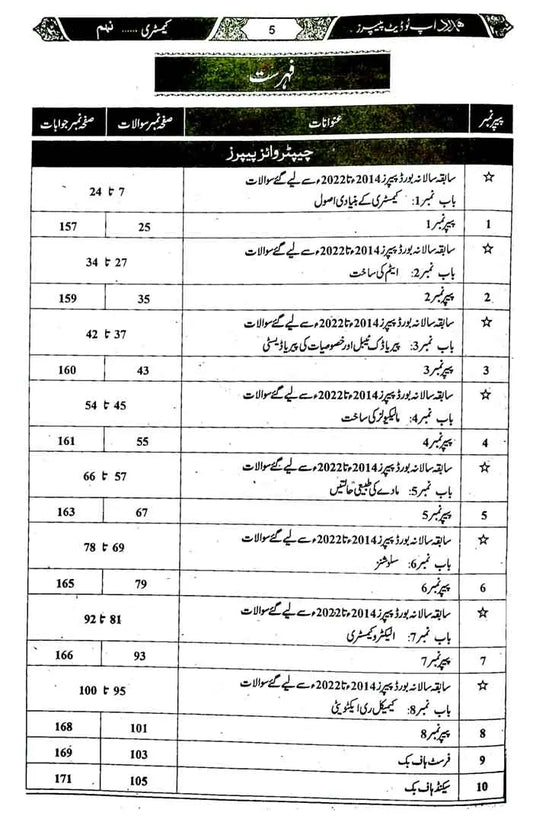 ہمدرد اپ ٹو ڈیٹ پیپرز 5 کیمسٹری ...... نہم
فہرست
پیپر نمبر عنوانات صفحہ نمبر سوالات صفحہ نمبر جوابات
چیپٹر وائز پیپرز
☆ سابقہ سالانہ بورڈ پیپرز 2014ء تا 2022ء سے لیے گئے سوالات
باب نمبر 1: کیمسٹری کے بنیادی اصول 7 تا 24
1 پیپر نمبر 1 25 157
☆ سابقہ سالانہ بورڈ پیپرز 2014ء تا 2022ء سے لیے گئے سوالات
باب نمبر 2: ایٹم کی ساخت 27 تا 34
2 پیپر نمبر 2 35 159
☆ سابقہ سالانہ بورڈ پیپرز 2014ء تا 2022ء سے لیے گئے سوالات
باب نمبر 3: پیریاڈک ٹیبل اور خصوصیات کی پیریاڈیسٹی 37 تا 42
3 پیپر نمبر 3 43 160
☆ سابقہ سالانہ بورڈ پیپرز 2014ء تا 2022ء سے لیے گئے سوالات
باب نمبر 4: مالیکیولز کی ساخت 45 تا 54
4 پیپر نمبر 4 55 161
☆ سابقہ سالانہ بورڈ پیپرز 2014ء تا 2022ء سے لیے گئے سوالات
باب نمبر 5: مادے کی طبیعی حالتیں 57 تا 66
5 پیپر نمبر 5 67 163
☆ سابقہ سالانہ بورڈ پیپرز 2014ء تا 2022ء سے لیے گئے سوالات
باب نمبر 6: سلوشنز 69 تا 78
6 پیپر نمبر 6 79 165
☆ سابقہ سالانہ بورڈ پیپرز 2014ء تا 2022ء سے لیے گئے سوالات
باب نمبر 7: الیکٹرو کیمسٹری 81 تا 92
7 پیپر نمبر 7 93 166
☆ سابقہ سالانہ بورڈ پیپرز 2014ء تا 2022ء سے لیے گئے سوالات
باب نمبر 8: کیمیکل ری ایکٹویٹی 95 تا 100
8 پیپر نمبر 8 101 168
9 فرسٹ ہاف بک 103 169
10 سیکنڈ ہاف بک 105 171